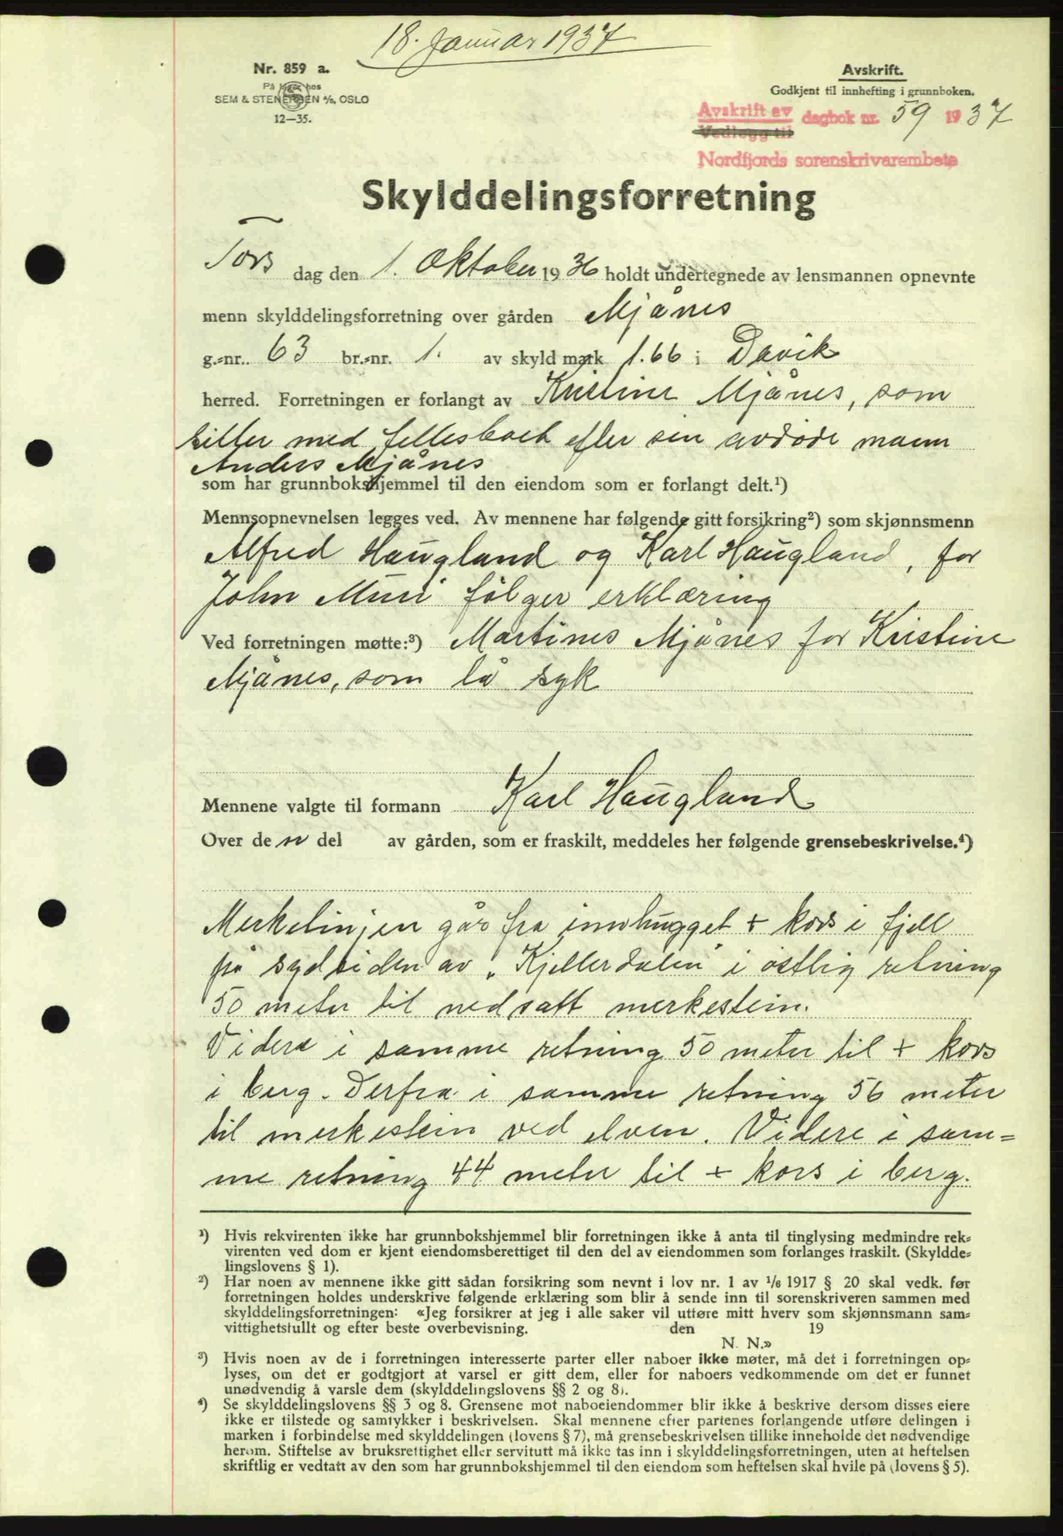 18. Januar 1937
Nr. 859 a.
På lager hos
SEM & STENERSEN A/S, OSLO
12—35.
Avskrift.
Godkjent til innhefting i grunnboken.
Avskrift av
Vedlegg til
dagbok nr. 59 1937
Nordfjords sorenskrivarembete
Skylddelingsforretning
Torsdag den 1. Oktober 1936 holdt undertegnede av lensmannen opnevnte
menn skylddelingsforretning over gården Mjånes
g.-nr. 63 br.-nr. 1. av skyld mark 1.66 i Davik
herred. Forretningen er forlangt av Kristine Mjånes, som
sitter med fellesboet efter sin avdøde mann
Anders Mjånes
som har grunnbokshjemmel til den eiendom som er forlangt delt.¹)
Mennsopnevnelsen legges ved. Av mennene har følgende gitt forsikring²) som skjønnsmenn
Alfred Haugland og Karl Haugland, for
John Muri følger erklæring
Ved forretningen møtte:³) Martines Mjånes for Kristine
Mjånes, som lå syk
Mennene valgte til formann Karl Haugland
Over den del av gården, som er fraskilt, meddeles her følgende grensebeskrivelse.⁴)
Merkelinjen går fra innhugget + kors i fjell
på sydsiden av "Kjellerdalen" i østlig retning
50 meter til nedsatt merkestein.
Videre i samme retning 50 meter til + kors
i berg. Derfra i samme retning 56 meter
til merkestein ved elven. Videre i sam=
me retning 44 meter til + kors i berg.
¹) Hvis rekvirenten ikke har grunnbokshjemmel blir forretningen ikke å anta til tinglysing medmindre rek-
virenten ved dom er kjent eiendomsberettiget til den del av eiendommen som forlanges fraskilt. (Skyldde-
lingslovens § 1).
²) Har noen av mennene ikke gitt sådan forsikring som nevnt i lov nr. 1 av 1/6 1917 § 20 skal vedk. før
forretningen holdes underskrive følgende erklæring som blir å sende inn til sorenskriveren sammen med
skylddelingsforretningen: «Jeg forsikrer at jeg i alle saker vil utføre mitt hverv som skjønnsmann sam-
vittighetsfullt og efter beste overbevisning. den 19
N. N.»
³) Hvis noen av de i forretningen interesserte parter eller naboer ikke møter, må det i forretningen op-
lyses, om det er godtgjort at varsel er gitt dem, eller for naboers vedkommende om det er funnet
unødvendig å varsle dem (skylddelingslovens §§ 2 og 8).
⁴) Se skylddelingslovens §§ 3 og 8. Grensene mot naboeiendommer blir ikke å beskrive dersom disses eiere
ikke er tilstede og samtykker i beskrivelsen. Skal mennene efter partenes forlangende utføre delingen i
marken i forbindelse med skylddelingen (lovens § 7), må grensebeskrivelsen tillike inneholde det nødvendige
herom. Stiftelse av bruksrettighet eller servitutt må ikke tas inn i skylddelingsforretningen, uten at heftelsen
skriftlig er vedtatt av den som har grunnbokshjemmel til den eiendom som heftelsen skal hvile på (lovens § 5).